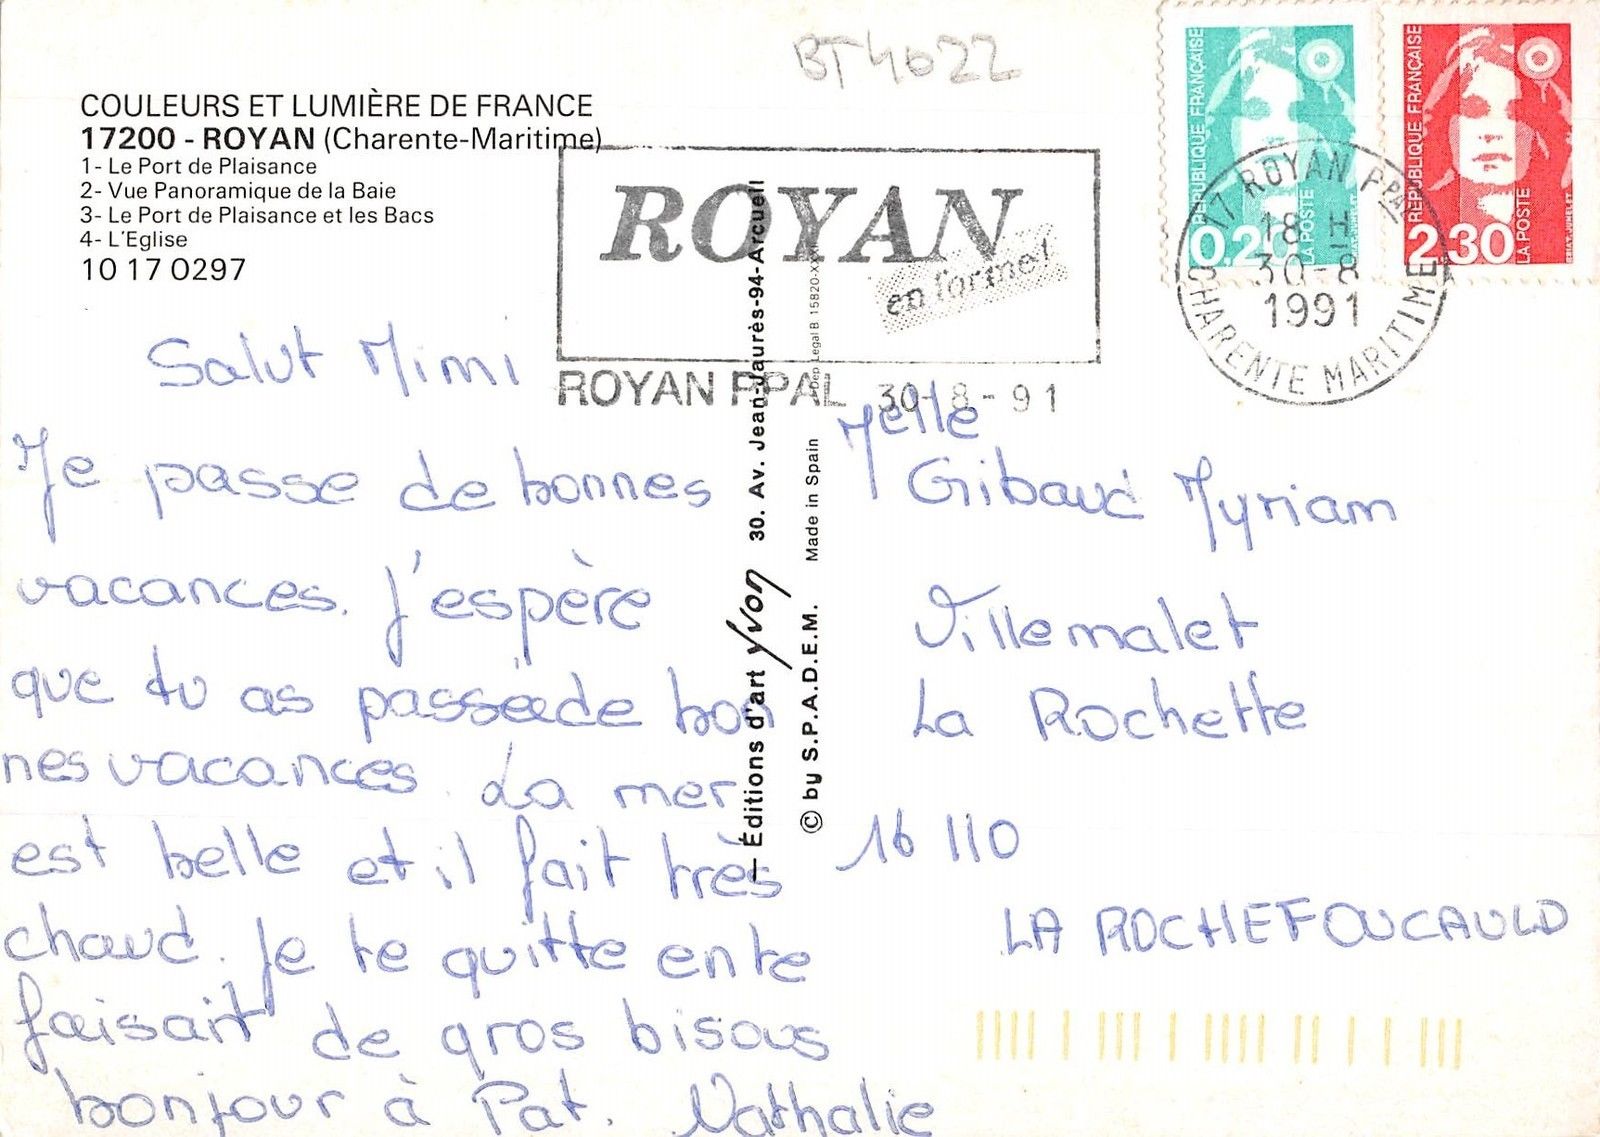 BT4022
COULEURS ET LUMIÈRE DE FRANCE
17200 - ROYAN (Charente-Maritime)
1- Le Port de Plaisance
2- Vue Panoramique de la Baie
3- Le Port de Plaisance et les Bacs
4- L'Eglise
10 17 0297
ROYAN
en forme!
ROYAN PPAL 30-8-91
REPUBLIQUE FRANÇAISE
0,20
LA POSTE
REPUBLIQUE FRANÇAISE
2,30
LA POSTE
17 ROYAN PPAL
18 H
30-8
1991
CHARENTE MARITIME
Salut Mimi
Je passe de bonnes
vacances. J'espère
que tu as passée de bon
nes vacances. La mer
est belle et il fait très
chaud. Je te quitte en te
faisait de gros bisous
bonjour à Pat. Nathalie
— Éditions d'art yvon 30. Av. Jean-Jaurès-94-Arcueil
© by S.P.A.D.E.M. Made in Spain Dép. Legal B 15820-XX
Melle
Gibaud Myriam
Villemalet
La Rochette
16 110
LA ROCHEFOUCAULD